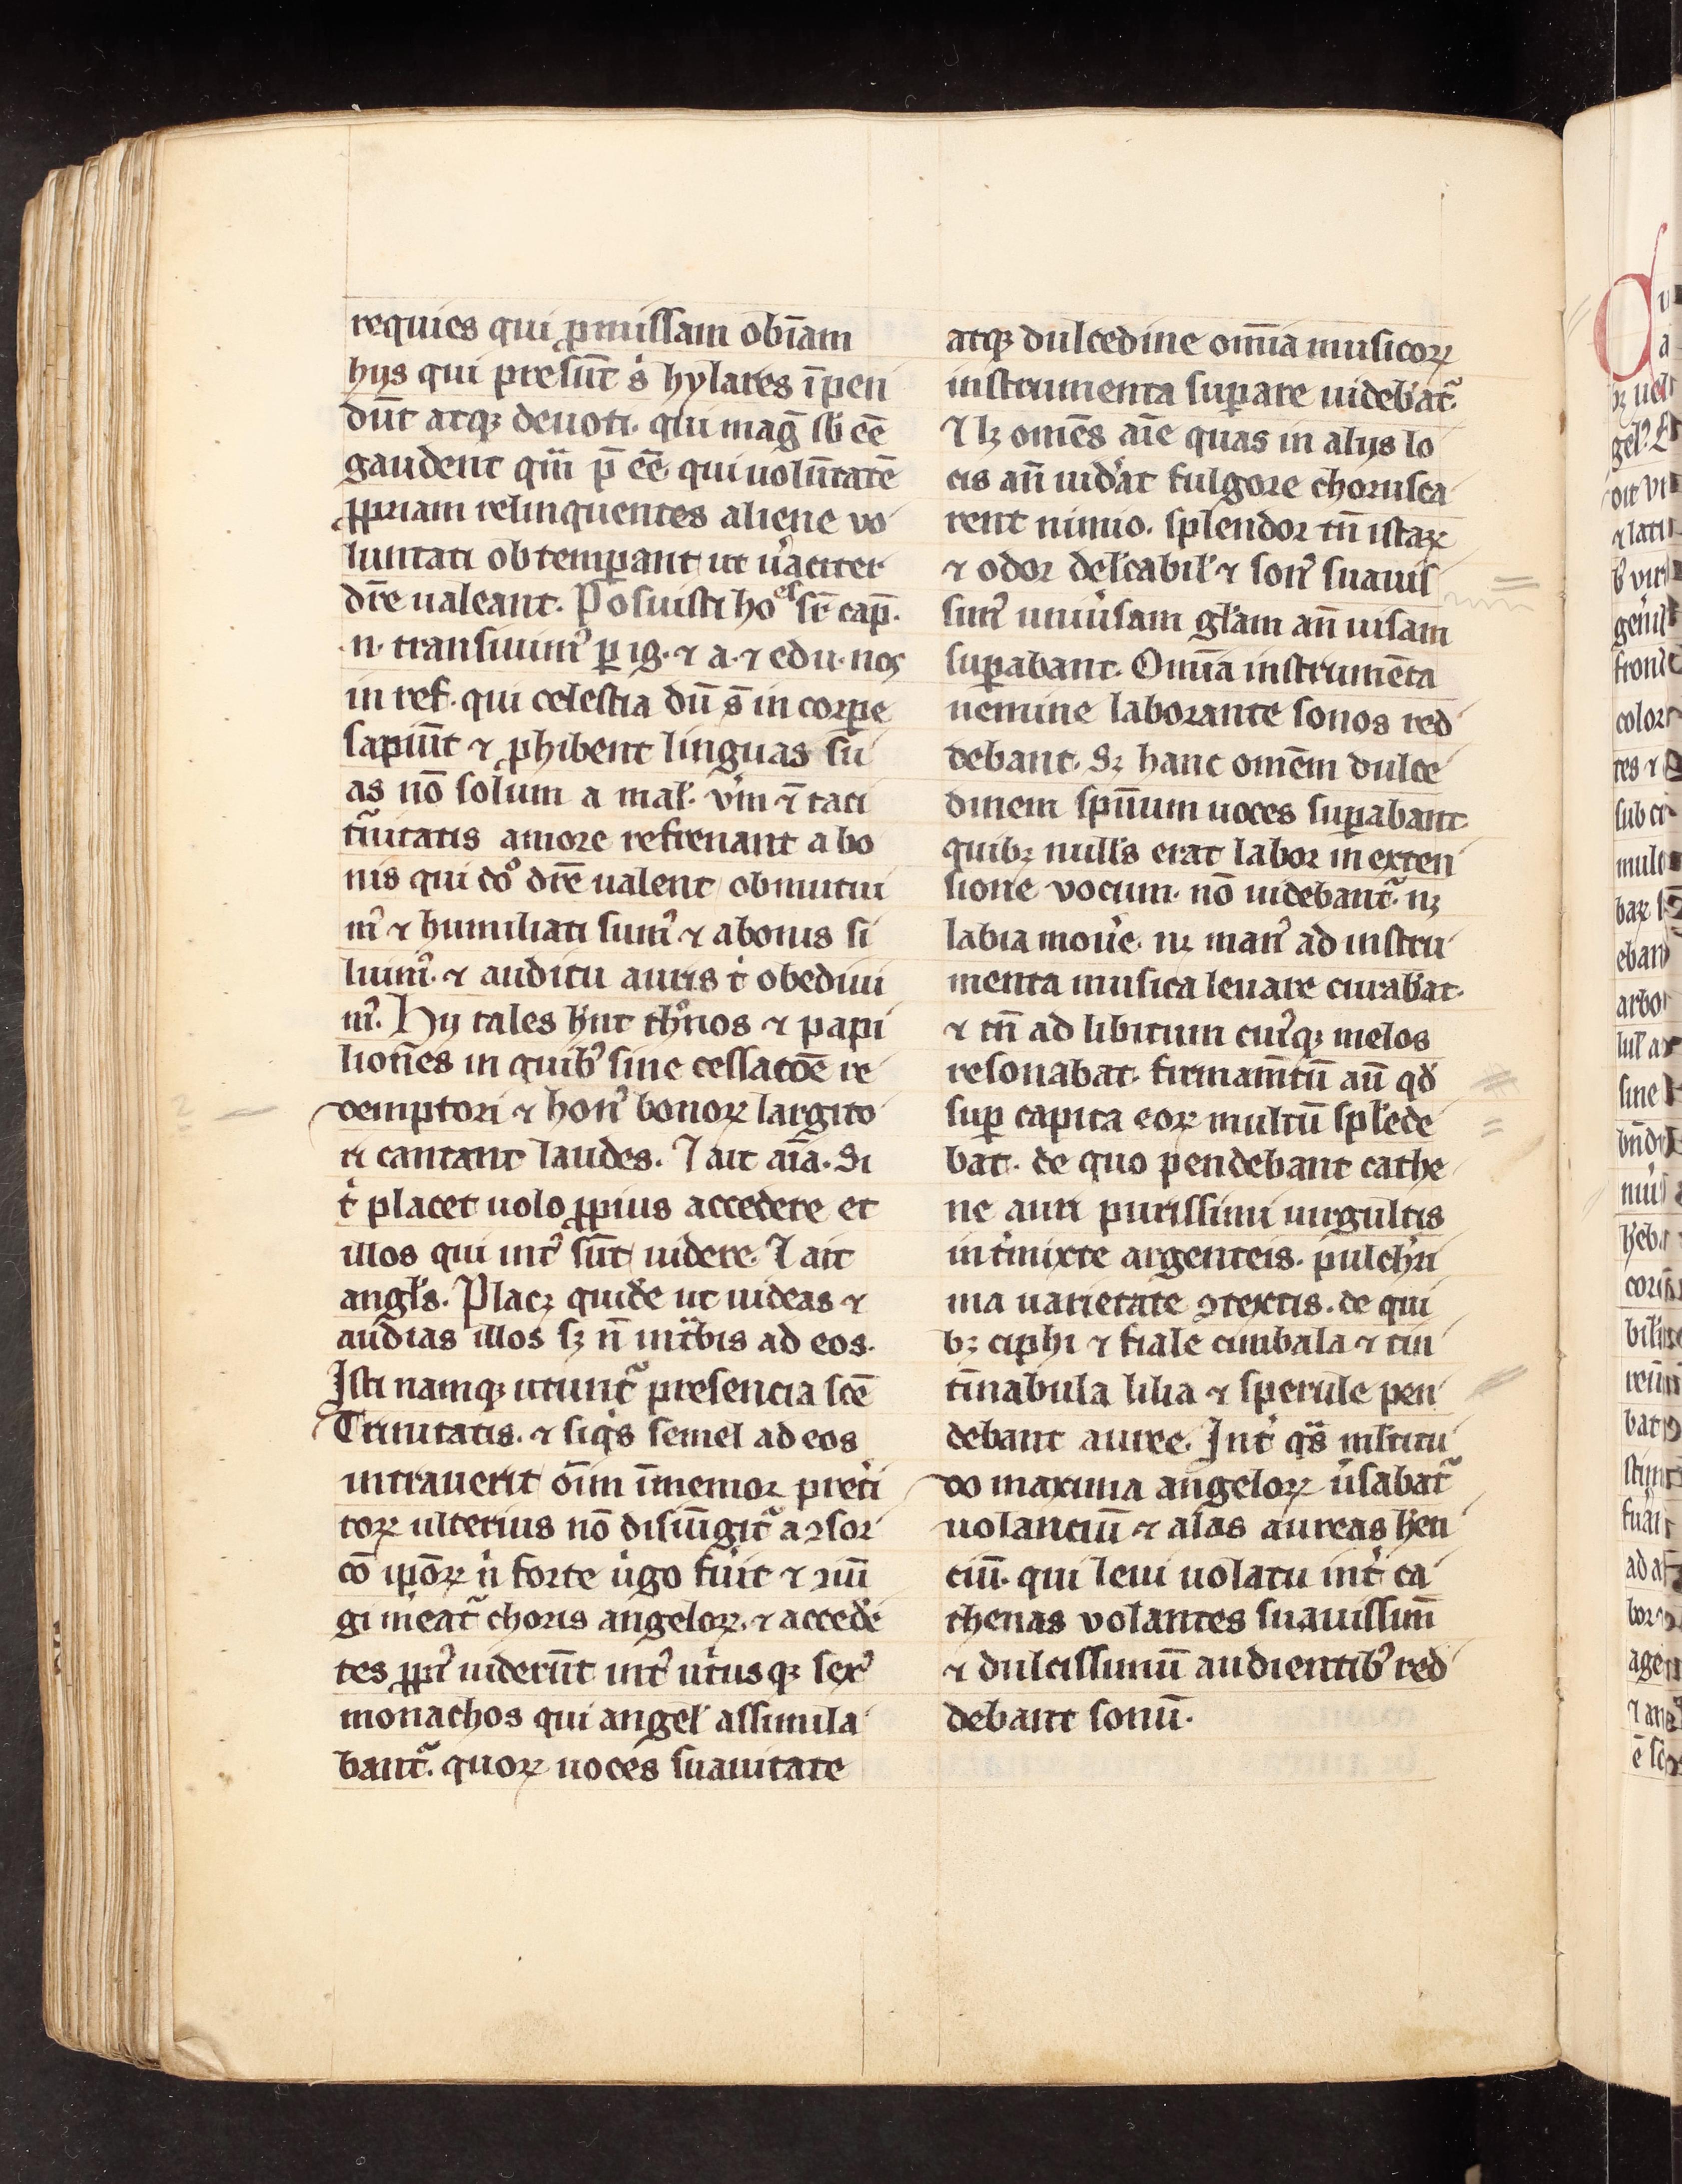 requies qui ꝓmissam obīam
hijs qui presūt s̉ hylares īpen
dūt atqꝫ deuoti. qui mag̅ sb̄ eē
gaudent qͥn p̄ eē. qui volūtatē
ꝓpriam relinquentes aliene vo
luntati obtemꝑant ut u̓aciter
dr̄e ualeant. Posuisti hoēs sr̄ cap̄.
.n. transiuimꝰ ꝑ ig. ⁊ a. ⁊ edu. nos
in ref. qui celestia dū s̄ in corꝑe
sapiūt ⁊ ꝓhibent linguas su
as nō solum a mal̓. v̓m ēt taci
tͥuitatis amore refrenant a bo
nis qui d̄o dr̄e ualent obmutui
mꝰ ⁊ humiliati sumꝰ ⁊ a bonis si
luimꝰ. ⁊ auditu auris t̓ obediui
mꝰ. Hij tales hn̄t thͦnos ⁊ papi
liones in quibꝰ sine cessatōe re
demptori ⁊ honꝰ bonoꝝ largito
ri cantant laudes. ⁊ ait aīa. Si
t̓ placet uolo ꝓpius accedere et
illos qui intꝰ sūt uidere. ⁊ ait
angl̓s. Placꝫ quidē ut uideas ⁊
audias illos sꝫ n̄ int̓bis ad eos.
Isti namqꝫ utuntᷣ presencia scē
Trinitatis. ⁊ siqͥs semel ad eos
intrauerit oīm īmemor pret̓i
toꝝ ulterius nō disiūgitᷣ a ꝯsor
cō ip̄oꝝ n̓ forte u̓go fu̓it ⁊ ꝯiū
gi meatᷣ choris angeloꝝ. ⁊ accedē
tes ꝓpiꝰ uiderūt intꝰ ut̓usqꝫ sexꝰ
monachos qui angel̓ assimila
bantᷣ. quoꝝ uoces suauitate
atqꝫ dulcedine om̄ia musicoꝝ
instrumenta suꝑare uidebatᷣ.
⁊ lꝫ om̄es aīe quas in alijs lo
cis an̄ uid̓at fulgore chorusca
rent nimio. splendor tn̄ istaꝝ
⁊ odor delc̄abil̓ ⁊ sonꝰ suauis
simꝰ uniu̓sam gl̓am an̄ uisam
suꝑabant. Om̄ia instrumēta
nemine laborante sonos red
debant. Sꝫ hanc om̄em dulce
dinem spn̄um uoces suꝑabant.
quibꝫ nullꝰs erat labor in exten
sione vocum. nō uidebantᷣ. nꝫ
labia mou̓e. nꝫ manꝰ ad instru
menta musica leuare curabat.
⁊ tn̄ ad libitum cuiꝰqꝫ melos
resonabat. firmam̄tū aū qd̓
suꝑ capita eoꝝ multū splēde
bat. de quo pendebant cathe
ne auri purissimi uirgultis
int̓mixte argenteis. pulch̓ri
ma uarietate ꝯtextis. de qui
bꝫ ciphi ⁊ fiale cimbala ⁊ tin
tīnabula lilia ⁊ sperule pen
debant auree. Int̓ qͣs m̄ltitu
do maxima angeloꝝ u̓sabatᷣ
uolanciū ⁊ alas aureas hēn
ciū. qui leui uolatu int̓ ca
thenas volantes suauissim̄
⁊ dulcissimū audientibꝰ red
debant sonū.